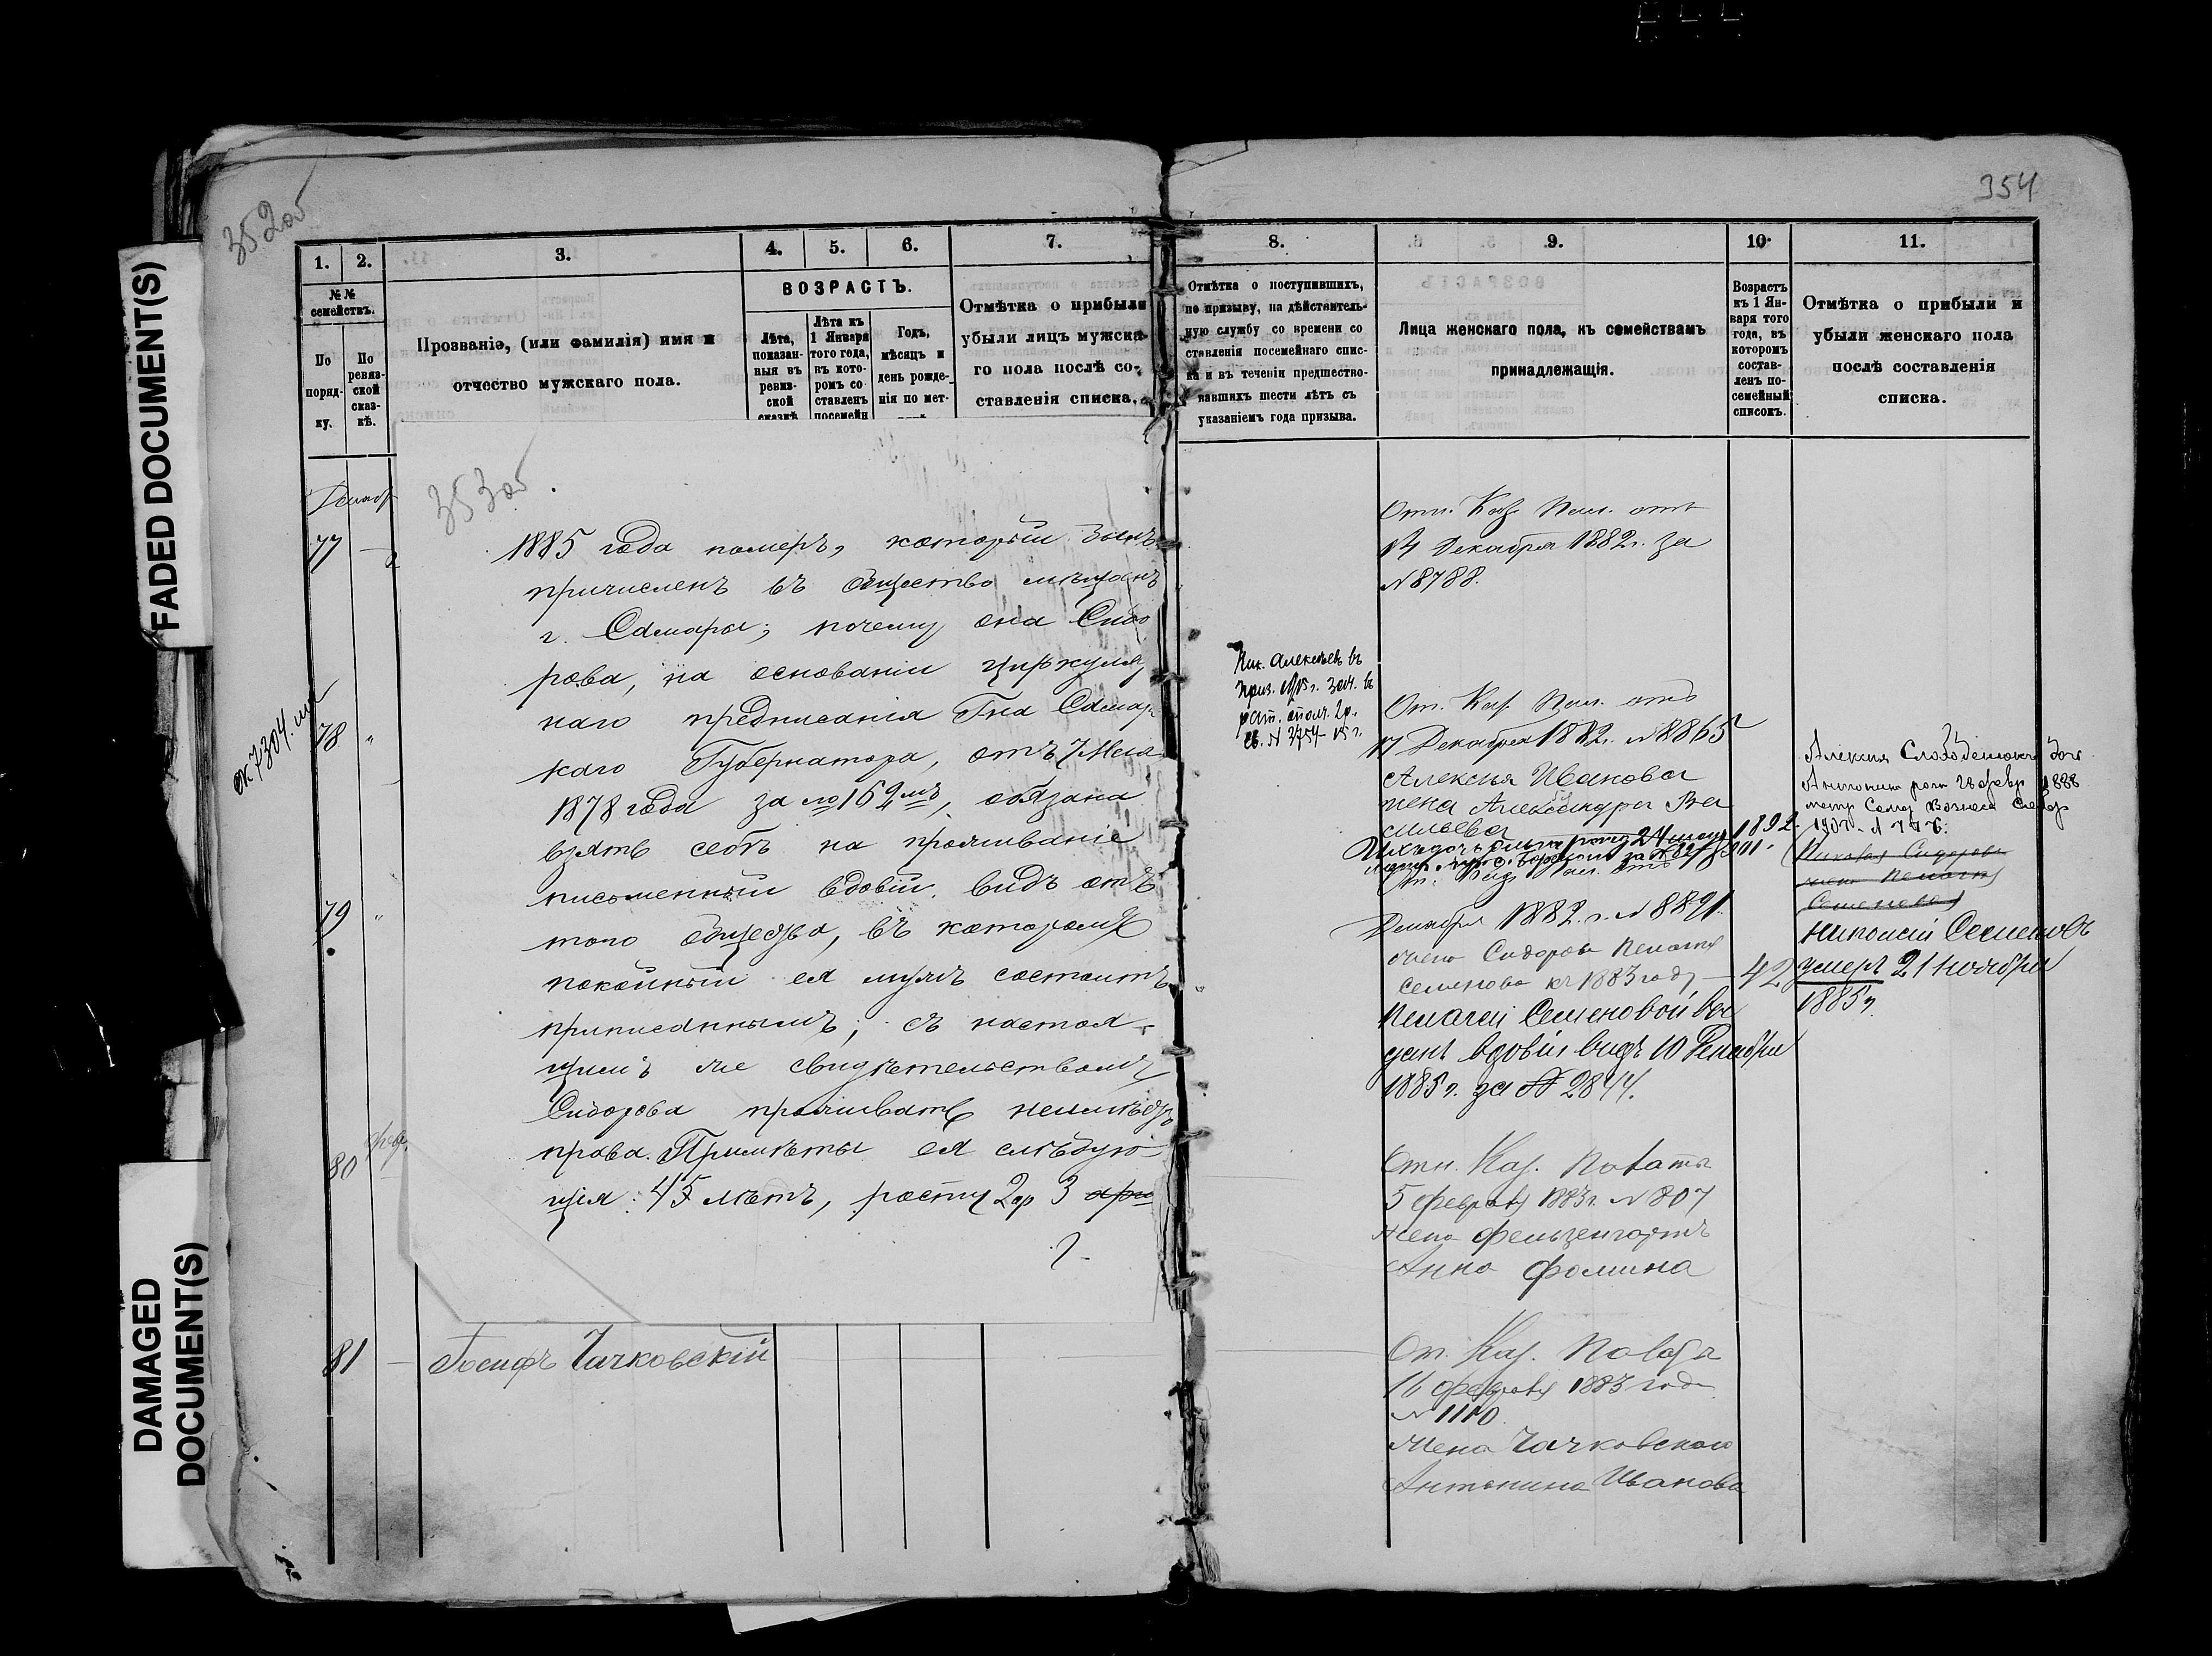 FADED DOCUMENT(S)
DAMAGED
DOCUMENT(S)
352об
354
1. 2. 3. 4. 5. 6. 7.
№№
семействъ.
По
поряд-
ку.
По
ревиз-
ской
сказ-
кѣ.
Прозваніе, (или фамилія) имя и
отчество мужскаго пола.
ВОЗРАСТЪ.
Лѣта,
показан-
ныя въ
ревиз-
ской
сказкѣ
Лѣта къ
1 Января
того года,
въ кото-
ромъ со
ставленъ
посемейн
Годъ,
мѣсяцъ и
день рожде-
нія по мет-
Отмѣтка о прибыли
убыли лицъ мужска-
го пола послѣ со-
ставленія списка.
353об
Декабр
77
78
79
80 февр.
81 — Іосифъ Чачковскій
1885 года померъ, который былъ
причисленъ въ общество мѣщанъ
г. Самары; почему она Сидо
рова, на основаніи циркуляр
наго предписанія Гна Самар
каго Губернатора, отъ 7 Мая
1878 года за № 1692мъ, обязана
взять себѣ на проживаніе
письменный вдовій видъ отъ
того общества, въ которомъ
покойный ея мужъ состоитъ
приписаннымъ; съ настоя-
щимъ же свидѣтельствомъ
Сидорова проживать неимѣетъ
права. Примѣты ея слѣдую-
щія: 45 лѣтъ, росту 2 ар 3
8. 9. 10 11.
Отмѣтка о поступившихъ,
по призыву, на дѣйствитель-
ную службу со времени со
ставленія посемейнаго спис-
ка и въ теченіи предшество-
вавшихъ шести лѣтъ съ
указаніемъ года призыва.
Лица женскаго пола, къ семействамъ
принадлежащія.
Возрастъ
къ 1 Ян-
варя того
года, въ
которомъ
состав-
ленъ по-
семейный
списокъ.
Отмѣтка о прибыли и
убыли женскаго пола
послѣ составленія
списка.
Отн. Каз. Пал. отъ
14 Декабря 1882 г. за
№ 8788.
Ник. Алексѣевъ въ
приз. 1915 г. зач. въ
рат. ополч. 2 р.
св. № 2754 - 15 г.
От. Каз. Пал. отъ
17 Декабря 1882 г. № 8865
Алексѣя Иванова
жена Александра Ва
сильева
1892
От. Каз. Пал. отъ 18
Декабря 1882 г. № 8891
жена Сидорова Пелагея
Семенова къ 1883 году — 42
Пелагеи Семеновой вы
данъ вдовій видъ 10 Декабря
1885 г. за № 2844.
1888
Сидорова
жена Пелагея
Семенова
Николай Семеновъ
умеръ 21 ноября
1885 г.
Отн. Каз. Палаты
5 февраля 1883 г. № 807
Жена Фельзенгартъ
Анна Фомина
От. Каз. Палаты
16 февраля 1883 года
№ 1110.
Жена Чачковскаго
Антонина Иванова